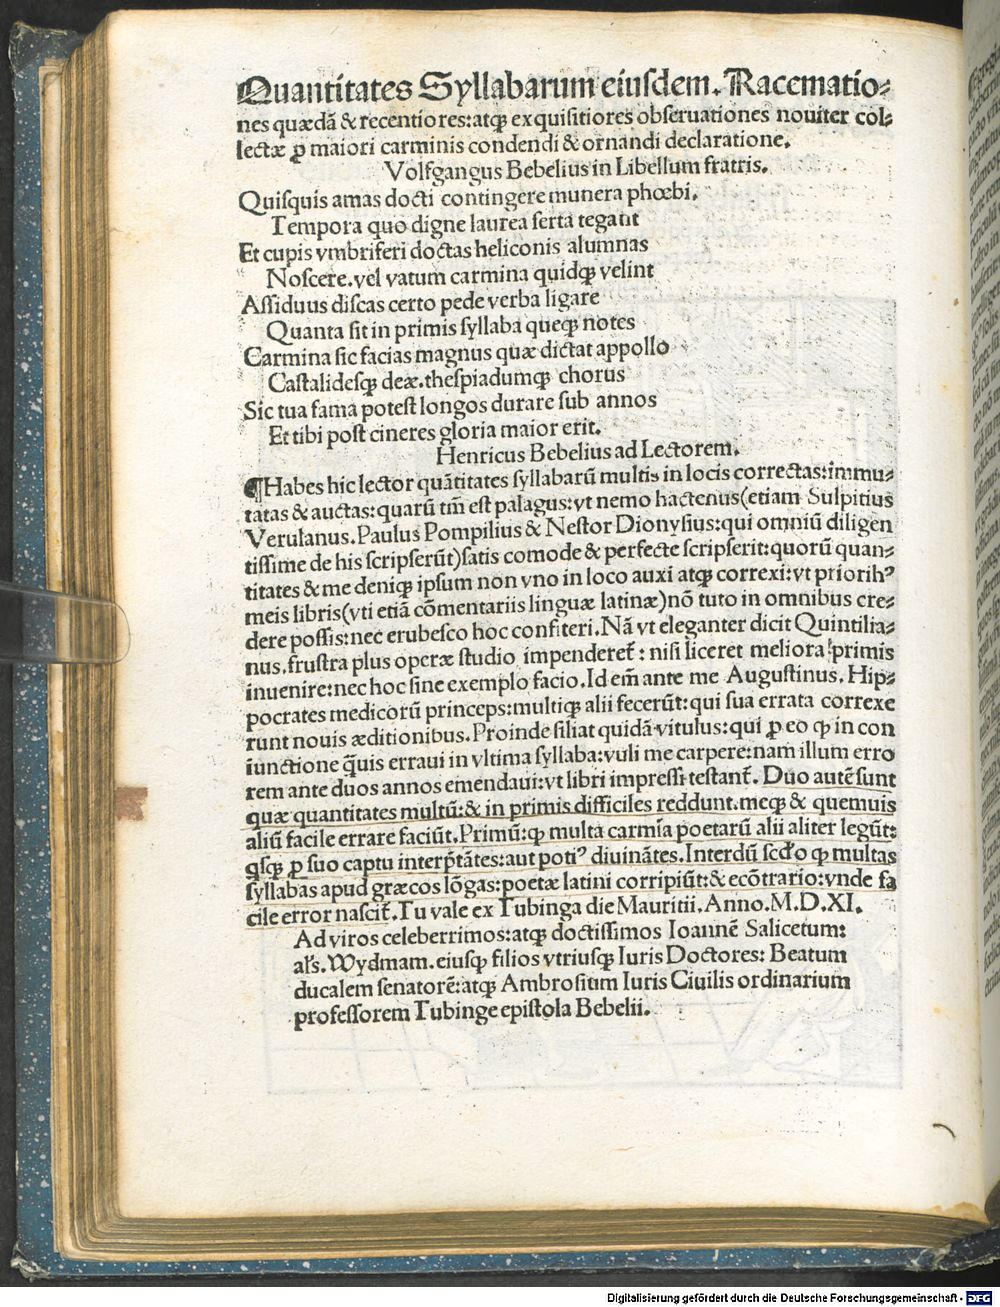 Quantitates Syllabarum eiusdem. Racematio⸗
nes quædã & recentiores:atqꝫ exquisitiores obseruationes nouiter col⸗
lectæ ꝓ maiori carminis condendi & ornandi declaratione.
Volfgangus Bebelius in Libellum fratris.
Quisquis amas docti contingere munera phœbi.
Tempora quo digne laurea serta tegant
Et cupis vmbriferi doctas heliconis alumnas
Noscere.vel vatum carmina quidqꝫ velint
Assiduus discas certo pede verba ligare
Quanta sit in primis syllaba queqꝫ notes
Carmina sic facias magnus quæ dictat appollo
Castalidesqꝫ deæ.thespiadumqꝫ chorus
Sic tua fama potest longos durare sub annos
Et tibi post cineres gloria maior erit.
Henricus Bebelius ad Lectorem.
¶Habes hic lector quãtitates syllabarũ multis in locis correctas:immu⸗
tatas & auctas:quarũ tm̃ est palagus:vt nemo hactenus(etiam Sulpitius
Verulanus.Paulus Pompilius & Nestor Dionysius:qui omniũ diligen
tissime de his scripserũt)satis comode & perfecte scripserit:quorũ quan⸗
titates & me deniqꝫ ipsum non vno in loco auxi atqꝫ correxi:vt prioribꝰ
meis libris(vti etiã cõmentariis linguæ latinæ)nõ tuto in omnibus cre⸗
dere possis:nec erubesco hoc confiteri.Nã vt eleganter dicit Quintilia⸗
nus.frustra plus operæ studio impenderet̃:nisi liceret meliora primis
inuenire:nec hoc sine exemplo facio.Id em̃ ante me Augustinus.Hip⸗
pocrates medicorũ princeps:multiqꝫ alii fecerũt:qui sua errata correxe
runt nouis æditionibus.Proinde siliat quidã vitulus:qui ꝓ eo ꝙ in con
iunctione q̃uis erraui in vltima syllaba:vuli me carpere:nam illum erro
rem ante duos annos emendaui:vt libri impressi testant̃. Duo autẽ sunt
quæ quantitates multũ:& in primis difficiles reddunt.meqꝫ & quemuis
aliũ facile errare faciũt.Primũ:ꝙ multa carmĩa poetarũ alii aliter legũt:
qsqꝫ ꝓ suo captu interp̃tãtes:aut potiꝰ diuinãtes.Interdũ scd̃o ꝙ multas
syllabas apud græcos lõgas:poetæ latini corripiũt:& ecõtrario:vnde fa
cile error nascit̃.Tu vale ex Tubinga die Mauritii.Anno.M.D.XI.
Ad viros celeberrimos:atqꝫ doctissimos Ioannẽ Salicetum:
al̃s.Wydmam.eiusqꝫ filios vtriusqꝫ Iuris Doctores: Beatum
ducalem senatorẽ:atqꝫ Ambrosium Iuris Ciuilis ordinarium
professorem Tubinge epistola Bebelii.
Digitalisierung gefördert durch die Deutsche Forschungsgemeinschaft - DFG